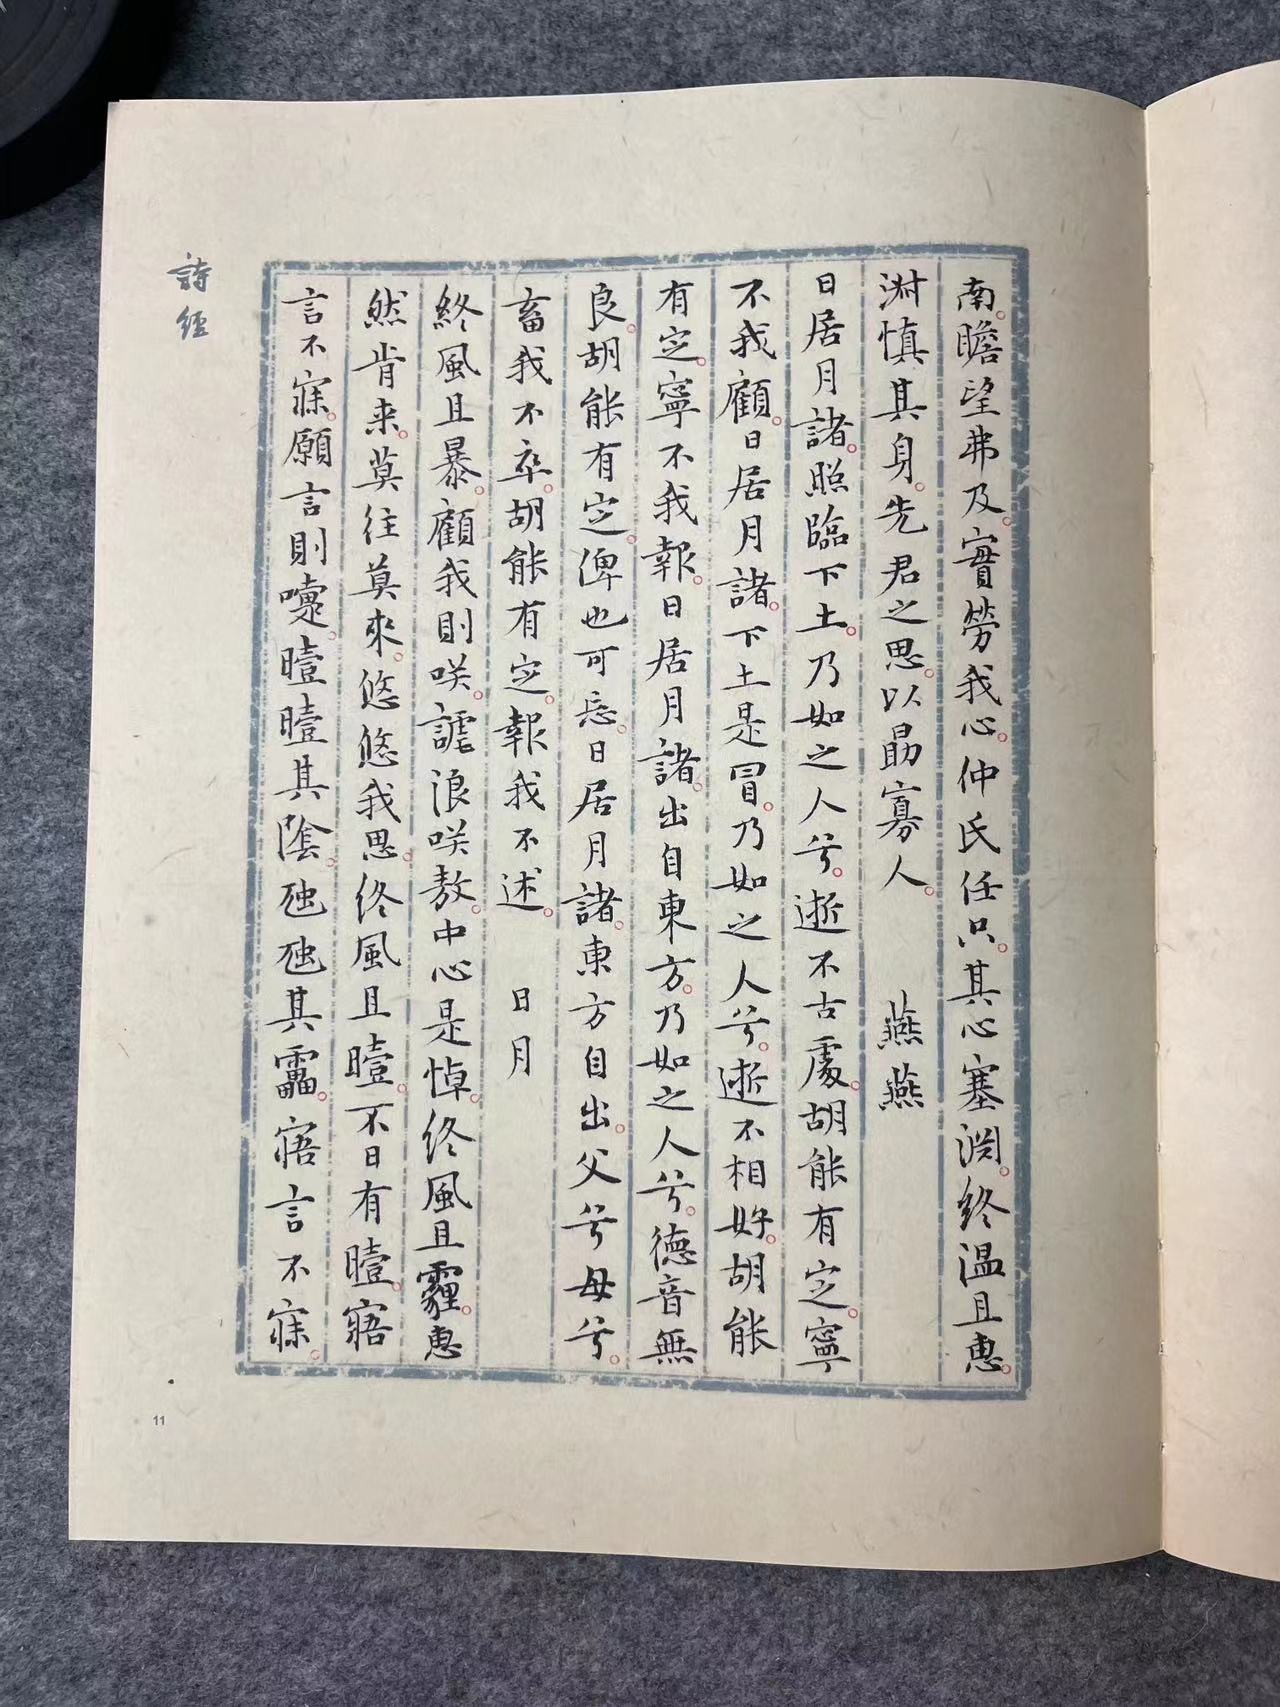 南。瞻望弗及。實勞我心。仲氏任只。其心塞淵。終温且惠。
淑慎其身。先君之思。以勗寡人。 燕燕
日居月諸。照臨下土。乃如之人兮。逝不古處。胡能有定。寧
不我顧。日居月諸。下土是冒。乃如之人兮。逝不相好。胡能
有定。寧不我報。日居月諸。出自東方。乃如之人兮。德音無
良。胡能有定。俾也可忘。日居月諸。東方自出。父兮母兮。
畜我不卒。胡能有定。報我不述。 日月
終風且暴。顧我則咲。謔浪咲敖。中心是悼。終風且霾。惠
然肯来。莫往莫來。悠悠我思。終風且曀。不日有曀。寤
言不寐。願言則嚏。曀曀其陰。虺虺其靁。寤言不寐。
詩經
11